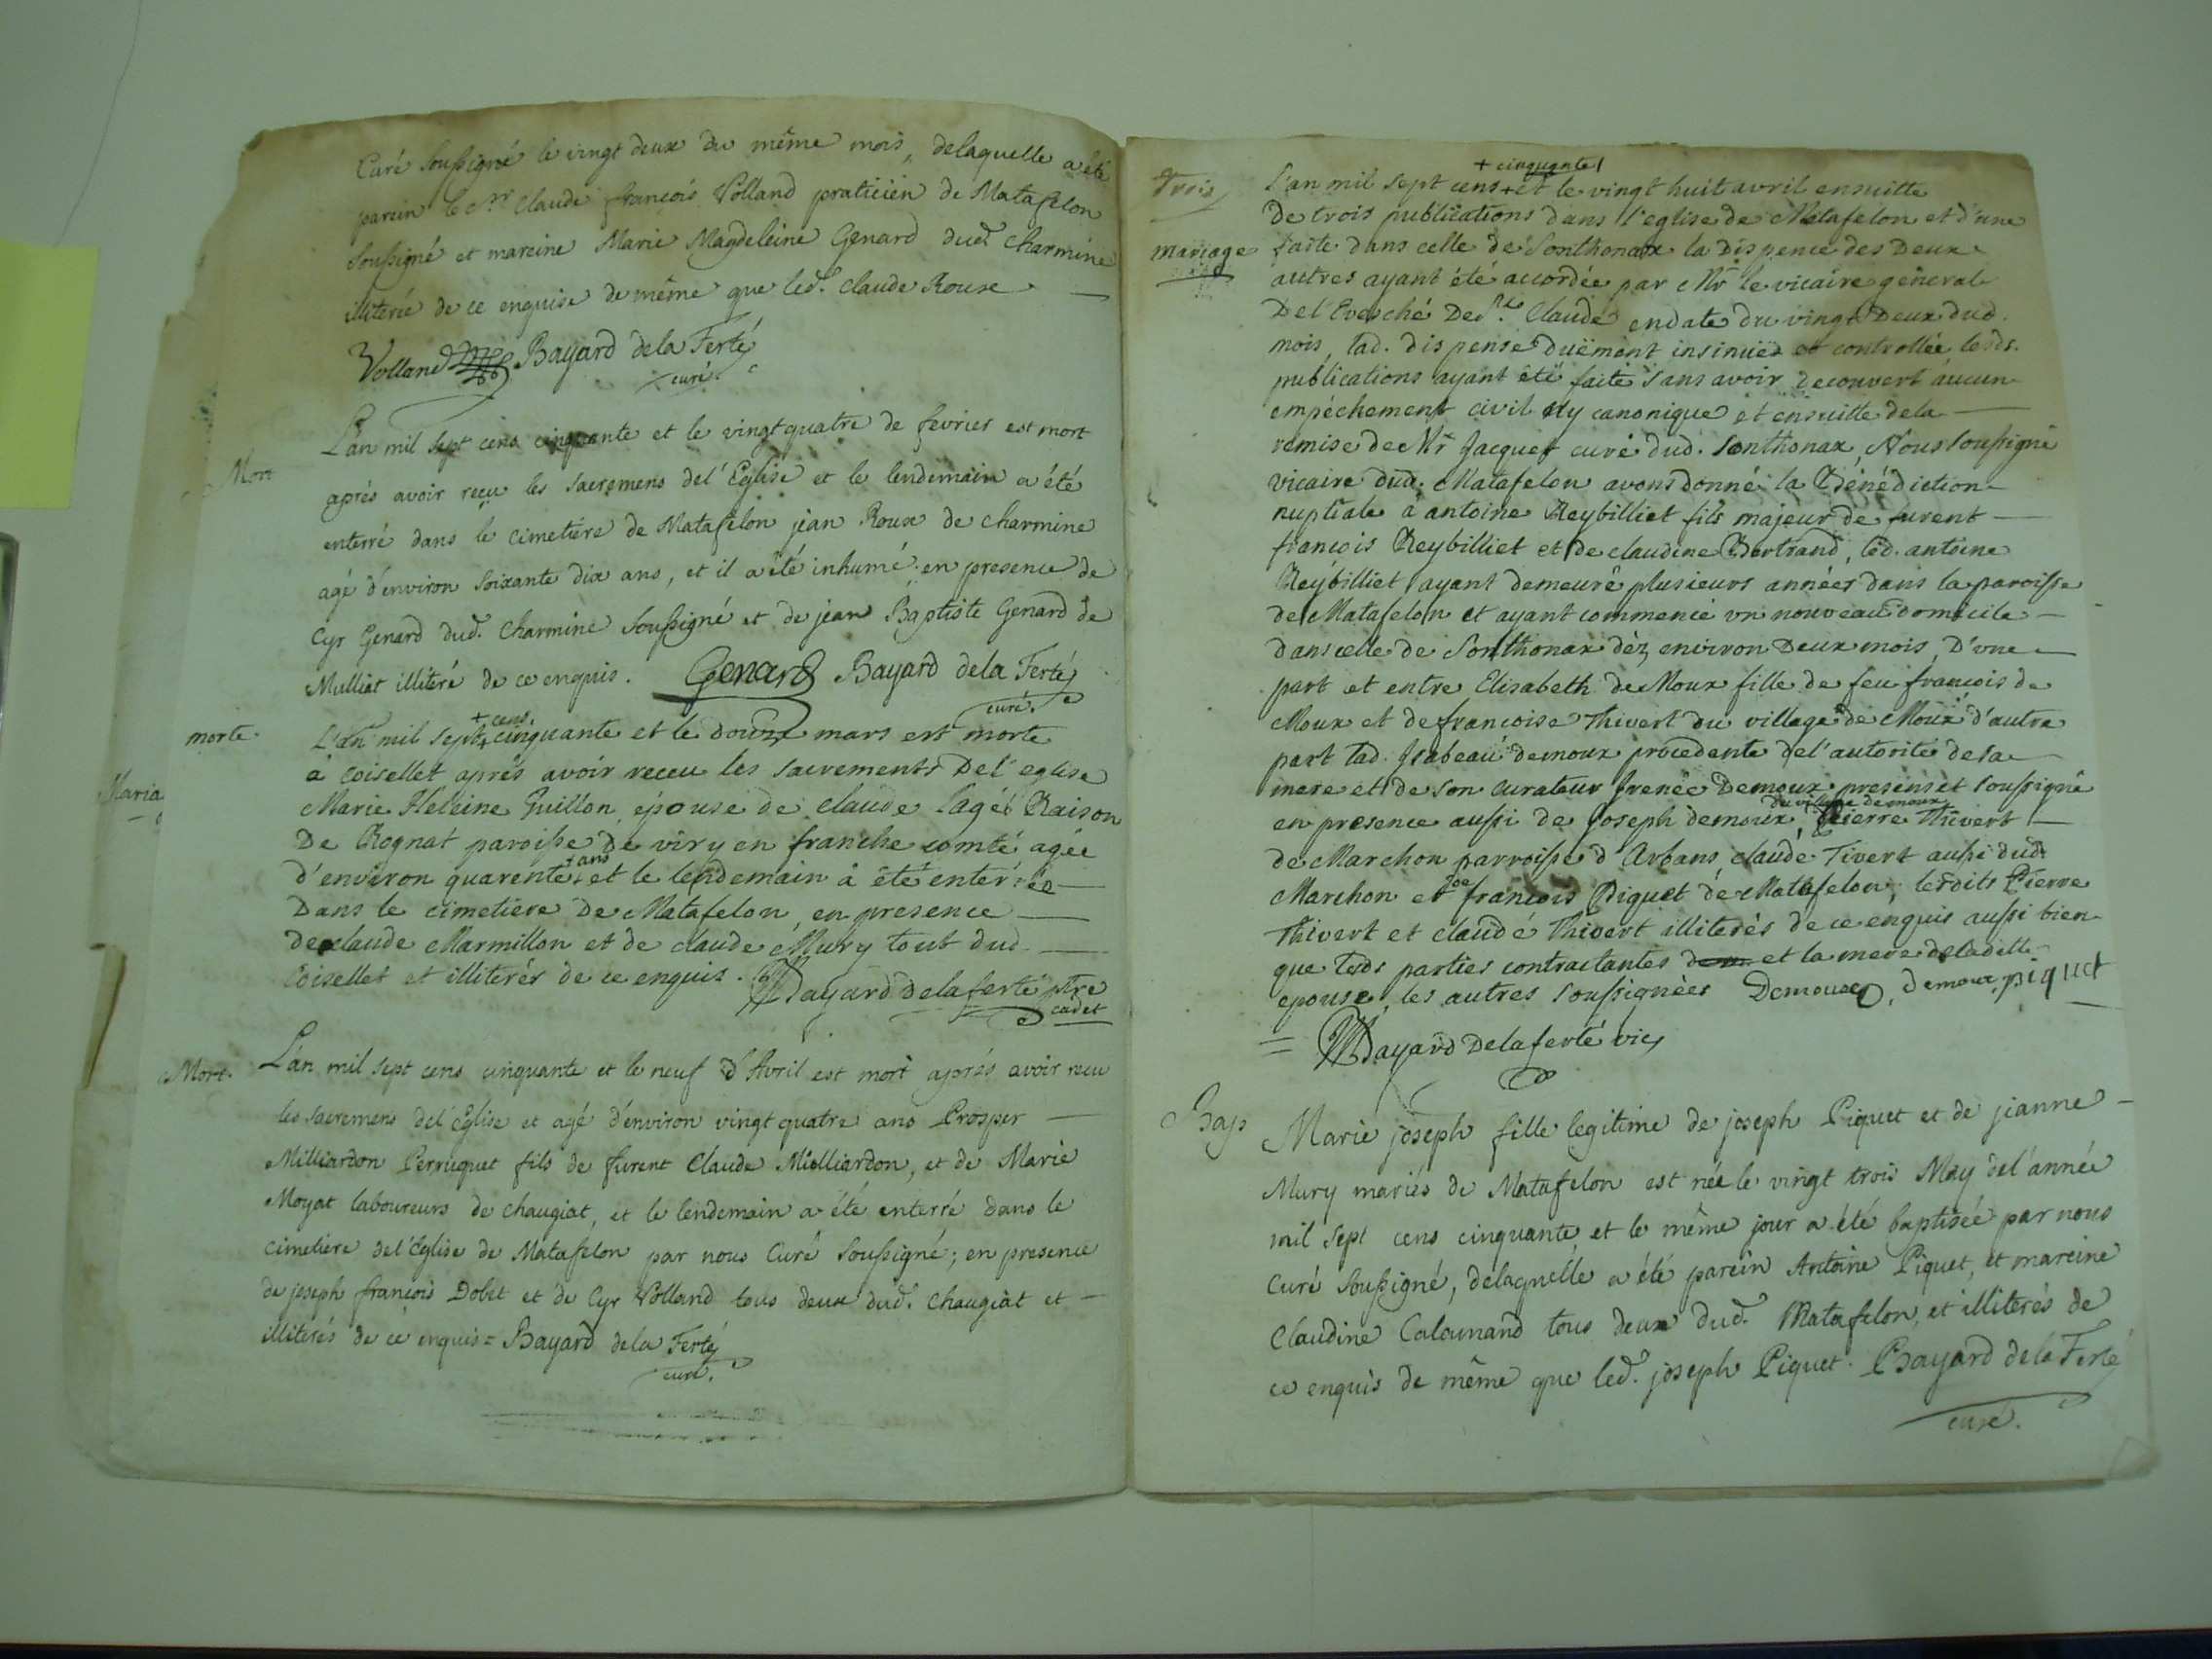 Curé soussigné le vingt deux du même mois, delaquelle a été
parein le Sr. Claude françois Volland praticien de Matafelon
soussigné et mareine Marie Magdeleine Genard dud. Charmine
illiterée de ce enquise de même que led. Claude Roux
Volland Bayard dela Ferté
curé.
Mort
L'an mil sept cens cinquante et le vingt quatre de fevrier est mort
après avoir reçu les sacremens del'Eglise et le lendemain a été
enterré dans le cimetiere de Matafelon jean Roux de charmine
agé d'environ soixante dix ans, et il a été inhumé en presence de
Cyr Genard dud. Charmine soussigné et de jean Baptiste Genard de
Mulliat illiteré de ce enquis. Genard Bayard dela Ferté
curé.
morte.
+ cens.
L'an mil sept + cinquante et le mars est morte
Maria
à Coisellet après avoir receu les sacrements Del'eglise
Marie Heleine Guillon, épouse de claude Raison
De Rognat paroisse De viry en franche comté agée
+ ans
d'environ quarente + et le lendemain à été enterrée
Dans le cimetiere De Matafelon, en presence
de claude Marmillon et de claude Mury tout dud.
Coisellet et illiterés de ce enquis. Bayard delaferté ptre
cadet
Mort.
L'an mil sept cens cinquante et le neuf d'Avril est mort après avoir recu
les sacremens del'Eglise et agé d'environ vingt quatre ans Prosper
Milliardon Perruquet fils de furent Claude Milliardon, et de Marie
Moyat laboureurs de chaugiat, et le lendemain a été enterré dans le
cimetiere del'Eglise de Matafelon par nous Curé soussigné; en presence
de joseph françois Dobet et de Cyr Volland tous deux dud. Chaugiat et
illiterés de ce enquis = Bayard dela Ferté
curé.
Trois
mariage
+ cinquante /
L'an mil sept cens + et le vingt huit avril ensuitte
De trois publications dans l'eglise de Matafelon et d'une
faite dans celle de Sonthonax la Dispence des Deux
autres ayant été accordée par Mr le vicaire general
Del'Evesché De St. Claude en date du vingt Deux dud.
mois, lad. dispense duëment insinuée et controllée lesds.
publications ayant été faite sans avoir decouvert aucun
empéchement civil ny canonique et ensuitte dela
remise de Mr Jacquet curé dud. Sonthonax, Nous soussigné
vicaire dud. Matafelon avons donné la Bénédiction
nuptiale à antoine Reybilliet fils majeur de furent
françois Reybilliet et de claudine Bertrand, led. antoine
Reybilliet ayant demeuré plusieurs années dans la paroisse
de Matafelon et ayant commencé un nouveau domicile
dans celle de Sonthonax dèz environ Deux mois, D'une
part et entre Elisabeth de Moux fille de feu françois de
Moux et de francoise Thivert du village de Moux d'autre
part lad. Isabeau demoux procedente del'autorité de sa
mere et de son curateur Demoux present et soussigné
du village demoux
en presence aussi de Joseph demoux, Pierre Thivert
de Marchon parroisse d'Arbans, claude Tivert aussi dud.
Marchon et françois Piquet de Matafelon, lesdits Pierre
Thivert et claude Thivert illiterés de ce enquis aussi bien
que lesds parties contractantes et la mere deladitte
epouse, les autres soussignées Demoux, demoux, piquet
Bayard Delaferté vic
Bap
Marie joseph fille legitime de joseph Piquet et de jeanne
Mury mariés de Matafelon est née le vingt trois May del'année
mil sept cens cinquante et le même jour a été baptisée par nous
Curé soussigné, delaquelle a été parein Antoine Piquet, et mareine
Claudine tous deux dud. Matafelon, et illiterés de
ce enquis de même que led. joseph Piquet. Bayard dela Ferté
curé.